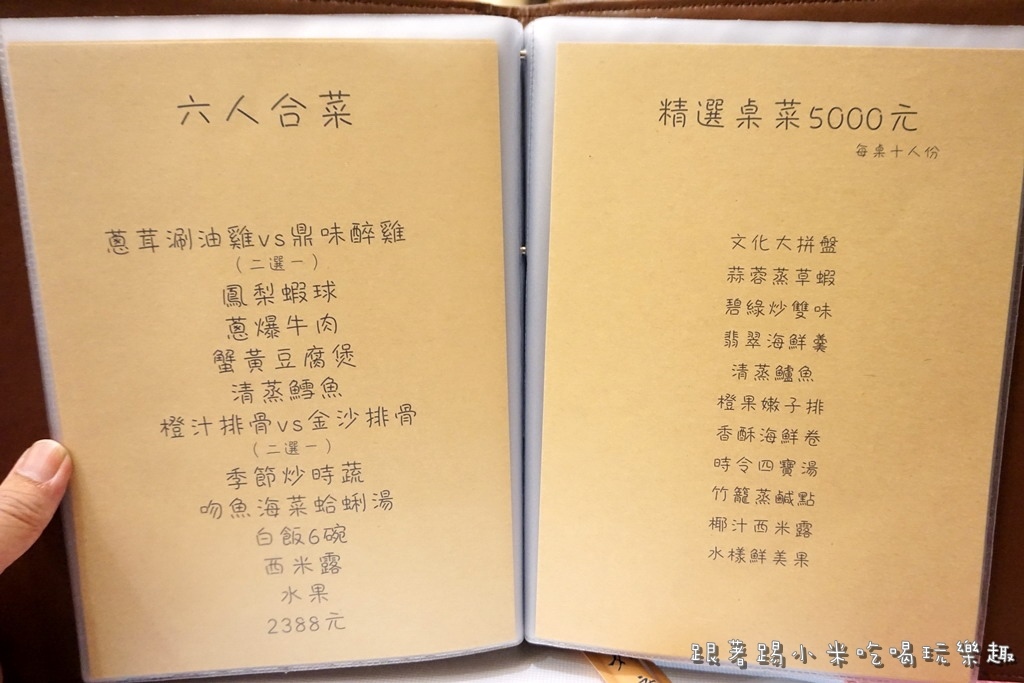 六人合菜
蔥茸涮油雞vs鼎味醉雞
（二選一）
鳳梨蝦球
蔥爆牛肉
蟹黃豆腐煲
清蒸鱈魚
橙汁排骨vs金沙排骨
（二選一）
季節炒時蔬
吻魚海菜蛤蜊湯
白飯6碗
西米露
水果
2388元
精選桌菜5000元
每桌十人份
文化大拼盤
蒜蓉蒸草蝦
碧綠炒雙味
翡翠海鮮羹
清蒸鱸魚
橙果嫩子排
香酥海鮮卷
時令四寶湯
竹籠蒸鹹點
椰汁西米露
水樣鮮美果
跟著踢小米吃喝玩樂趣